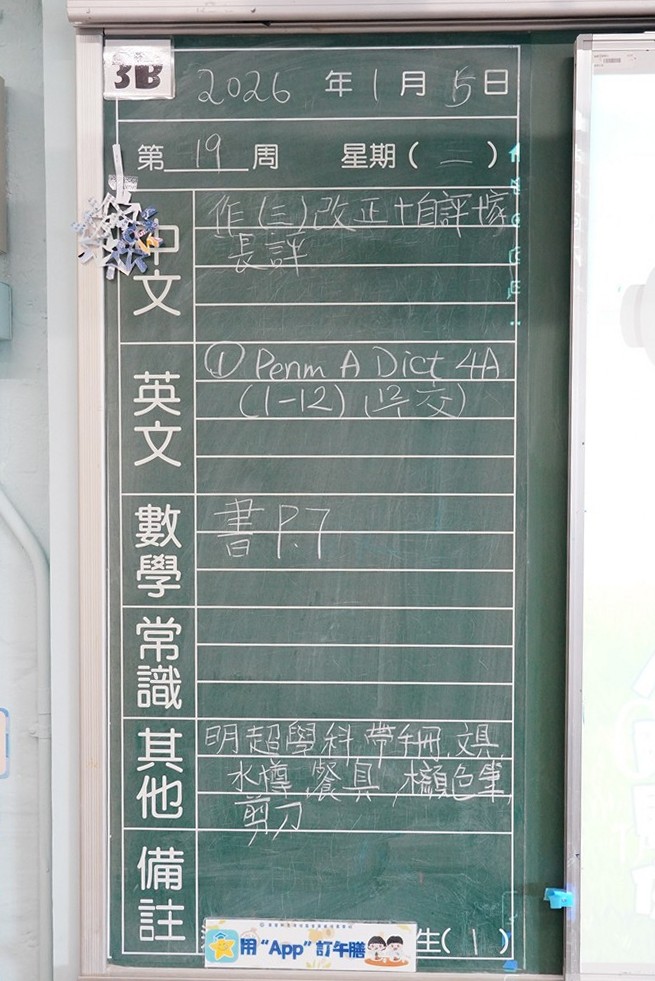 3B
2026 年 1 月 5 日
第 19 周 星期 ( 二 )
中文
作(三)改正+自評+家
長評
英文
① Penm A Dict 4A
(1-12) (12/1 交)
數學
書 P.7
常識
其他
明超學科,帶手冊,文具,
水樽,餐具,木顏色筆,
剪刀
備註
用“App”訂午膳
生( 1 )